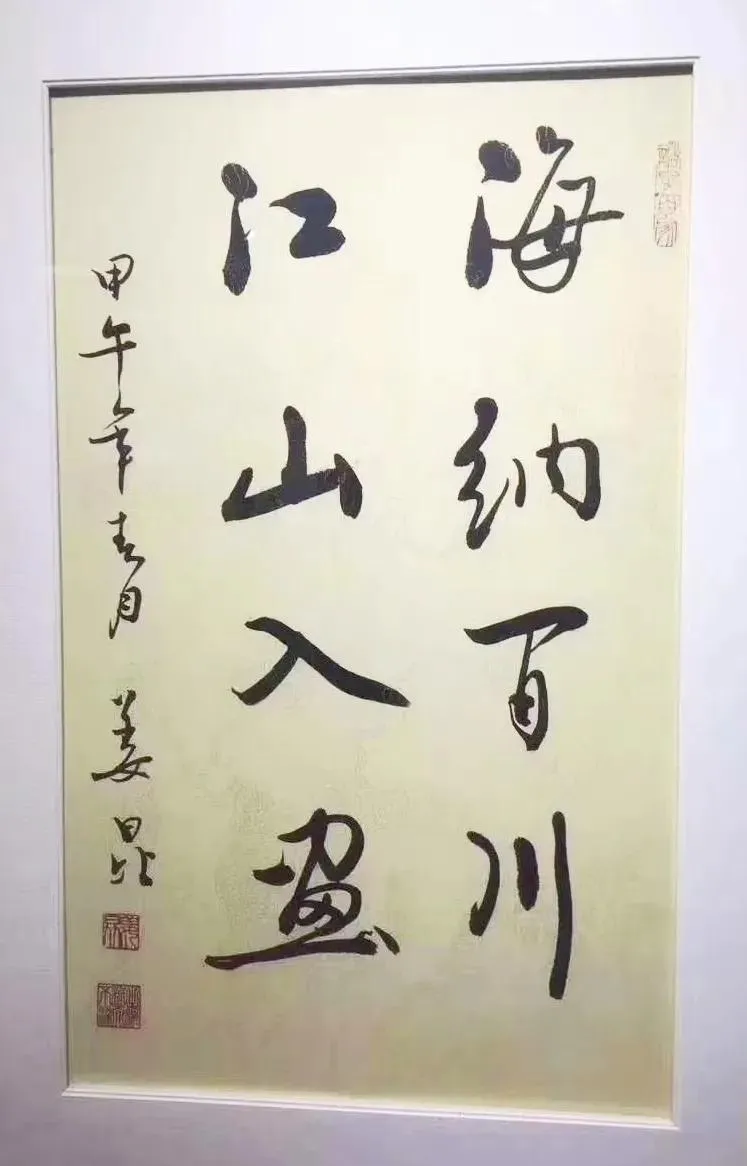 海纳百川
江山入画
甲午年春月 姜昆